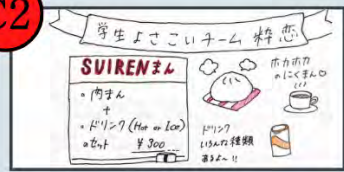 C2
学生よさこいチーム 粋恋
SUIRENまん
・肉まん
+
・ドリンク(Hot or Ice)
のセット ¥300
ホカホカ
のにくまん♡
ドリンク
いろんな種類
あるよ〜!!